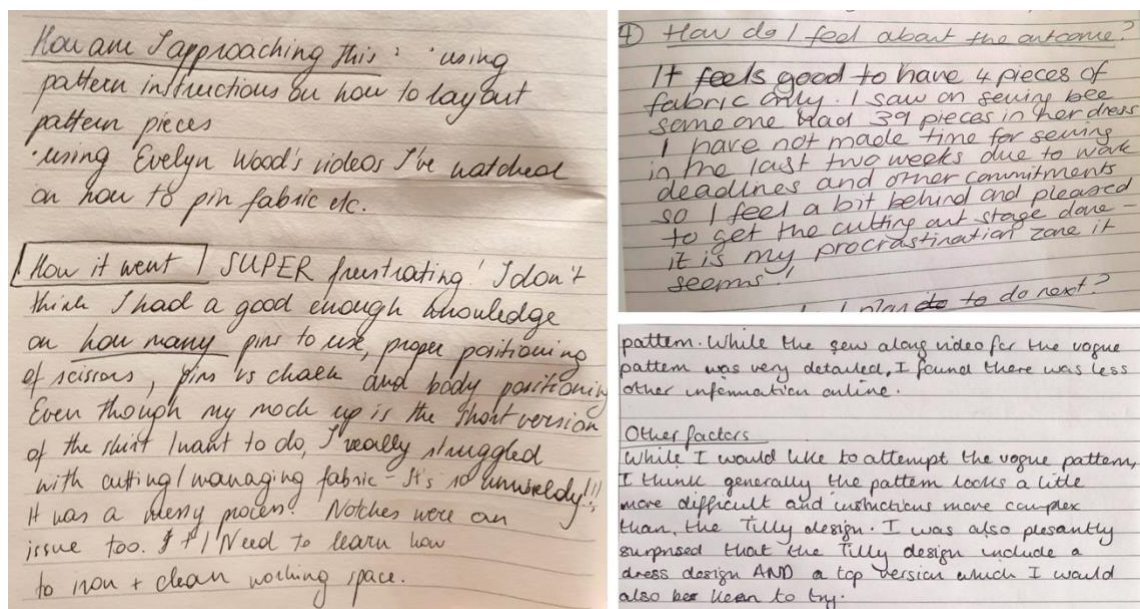 How am I approaching this: · using
pattern instructions on how to layout
pattern pieces
· using Evelyn Wood's videos I've watched
on how to pin fabric etc.
How it went SUPER frustrating! I don't
think I had a good enough knowledge
on how many pins to use, proper positioning
of scissors, pins vs chalk and body positioning
Even though my mock up is the short version
of the skirt I want to do, I really struggled
with cutting/managing fabric - It's so unwieldy!!!
It was a messy process! Notches were an
issue too. I Need to learn how
to iron + clean working space.
4) How do I feel about the outcome?
It feels good to have 4 pieces of
fabric only. I saw on sewing bee
someone had 39 pieces in her dress
I have not made time for sewing
in the last two weeks due to work
deadlines and other commitments
so I feel a bit behind and pleased
to get the cutting out stage done -
it is my procrastination zone it
seems!
I plan to do next?
pattern. While the sew along video for the vogue
pattern was very detailed, I found there was less
other information online.
Other factors
While I would like to attempt the vogue pattern,
I think generally the pattern looks a litle
more difficult and instructions more complex
than, the Tilly design. I was also plesantly
surprised that the Tilly design include a
dress design AND a top version which I would
also be keen to try.